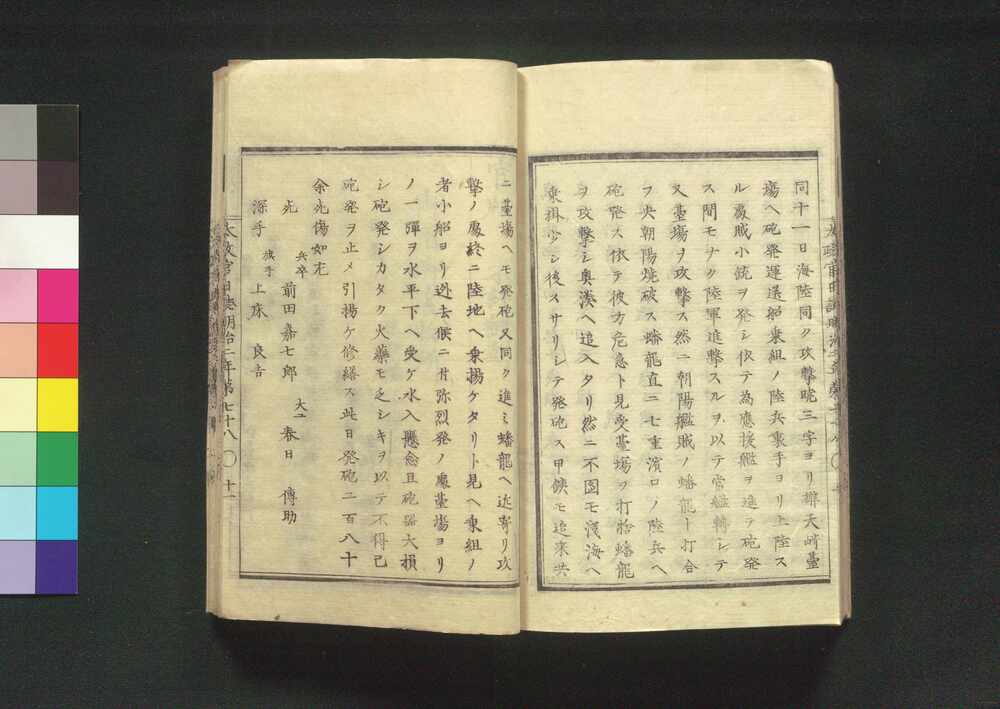 同十一日海陸同ク攻撃曉三字ヨリ辨天崎臺
場ヘ砲発運送船乗組ノ陸兵裏手ヨリ上陸ス
ル處賊小銃ヲ発シ依テ為應援艦ヲ進テ砲発
ス間モナク陸軍進撃スルヲ以テ當艦轉シテ
又臺場ヲ攻撃ス然ニ朝陽艦賊ノ蟠龍ト打合
フ央朝陽焼破ス蟠龍直ニ七重濱口ノ陸兵ヘ
砲発ス依テ彼方危急ト見受臺場ヲ打捨蟠龍
ヲ攻撃シ奥湊ヘ追入タリ然ニ不圖モ浅海ヘ
乗掛少シ後スサリシテ発砲ス甲鉄モ追来共
ニ臺場ヘモ発砲又同ク進ミ蟠龍ヘ近寄リ攻
撃ノ處終ニ陸地ヘ乗揚ケタリト見ヘ乗組ノ
者小船ヨリ逃去候ニ付弥烈発ノ處臺場ヨリ
ノ一彈ヲ水平下ヘ受ケ水入懸念且砲器大損
シ砲発シカタク火藥モ乏シキヲ以テ不得已
砲発ヲ止メ引揚ケ修繕ス此日発砲ニ百八十
余死傷如左
死 兵卒 前田嘉七郎 大工 春日 傳助
深手 旗手 上床 良吉
太政官日誌明治二年第七十八 〇 十一